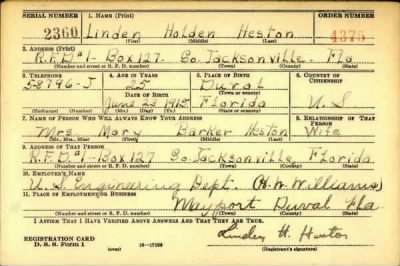 SERIAL NUMBER 1. NAME (Print) ORDER NUMBER
2360 Linden Holden Heston 4375
(First) (Middle) (Last)
2. ADDRESS (Print)
R.F.D#1- Box 127. So. Jacksonville. Fla
(Number and street or R. F. D. number) (Town) (County) (State)
3. TELEPHONE 4. AGE IN YEARS 5. PLACE OF BIRTH 6. COUNTRY OF CITIZENSHIP
5-8796-J 25 Duval
DATE OF BIRTH (Town or county)
June 23 1915 Florida U.S
(Exchange) (Number) (Mo.) (Day) (Yr.) (State or country)
7. NAME OF PERSON WHO WILL ALWAYS KNOW YOUR ADDRESS 8. RELATIONSHIP OF THAT PERSON
Mrs. Mary Barker Heston Wife
(Mr., Mrs., Miss) (First) (Middle) (Last)
9. ADDRESS OF THAT PERSON
R.F.D#1-Box 127 So. Jacksonville, Florida
(Number and street or R. F. D. number) (Town) (County) (State)
10. EMPLOYER'S NAME
U.S. Engineering Dept. (H.W. Williams)
11. PLACE OF EMPLOYMENT OR BUSINESS
Mayport Duval Fla.
(Number and street or R. F. D. number) (Town) (County) (State)
I AFFIRM THAT I HAVE VERIFIED ABOVE ANSWERS AND THAT THEY ARE TRUE.
REGISTRATION CARD
D. S. S. Form 1 16-17105 Linden H. Heston
(Registrant's signature)